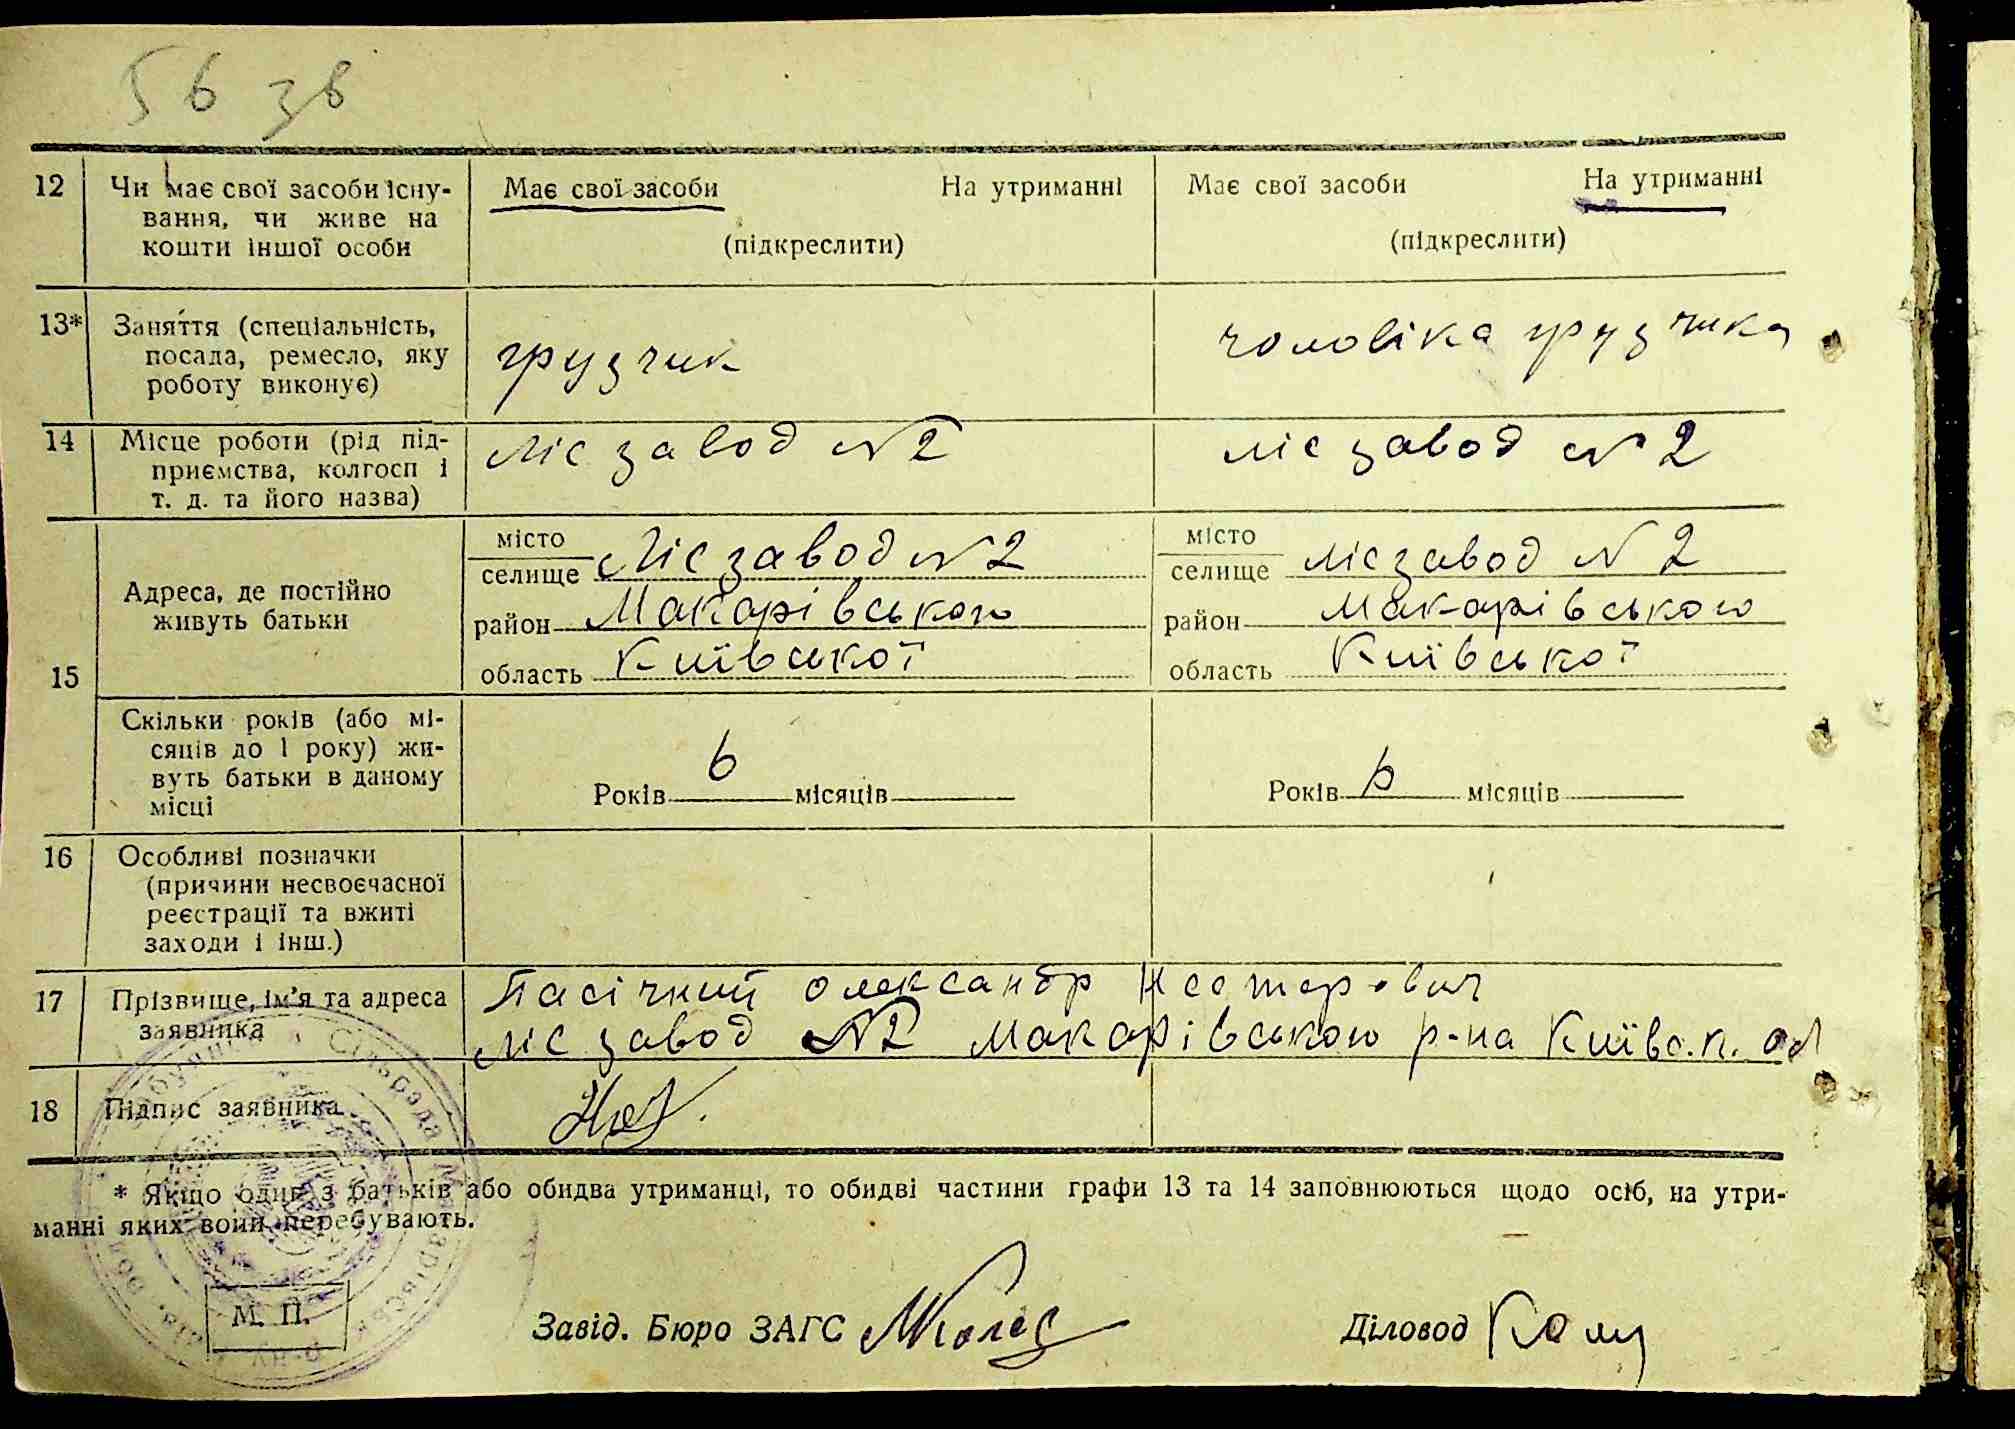 56 зв
12 Чи має свої засоби існу-
вання, чи живе на
кошти іншої особи
Має свої засоби На утриманні
(підкреслити)
Має свої засоби На утриманні
(підкреслити)
13* Заняття (спеціальність,
посада, ремесло, яку
роботу виконує)
грузчик
чоловіка грузчика
14 Місце роботи (рід під-
приємства, колгосп і
т. д. та його назва)
Ліс завод №2
ліс завод №2
15 Адреса, де постійно
живуть батьки
місто
селище Лісзавод №2
район Макарівського
область Київської
місто
селище лісзавод №2
район Макарівського
область Київської
Скільки років (або мі-
сяців до 1 року) жи-
вуть батьки в даному
місці
Років 6 місяців
Років 6 місяців
16 Особливі позначки
(причини несвоєчасної
реєстрації та вжиті
заходи і інш.)
17 Прізвище, ім'я та адреса
заявника
Пасічний Олександр Нестерович
ліс завод №2 Макарівського р-на Київс.к. обл
18 Підпис заявника
* Якщо один з батьків або обидва утриманці, то обидві частини графи 13 та 14 заповнюються щодо осіб, на утри-
манні яких вони перебувають.
М. П.
Завід. Бюро ЗАГС
Діловод